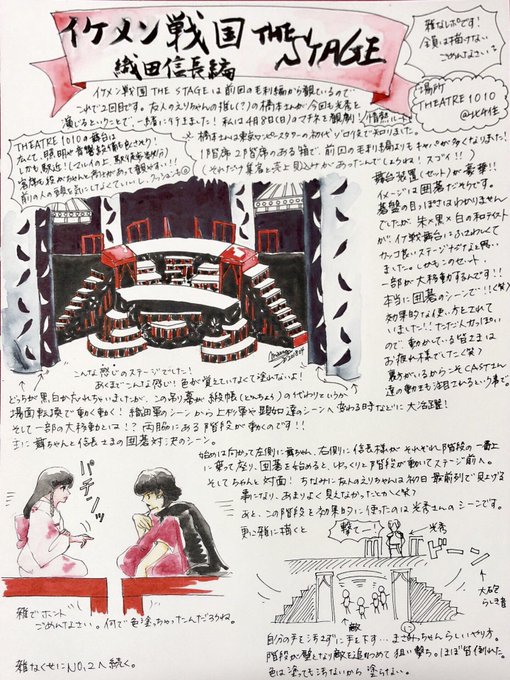 イケメン戦国 THE STAGE
織田信長編
雑なレポです!
全員は描けない
ごめんなさい!
場所
THEATRE1010
@北千住
イケメン戦国 THE STAGEは前回の毛利編から観ているので
これで2回目です。友人のえりちゃんの推し(?)の橋本さんが今回も光秀を
演じるということで、一緒に行けました! 私は4月8日(日)のマチネを観劇!
情熱レート
橋本さんは東京ワンピースタワーの初代ゾロ役で知りました。
1階席2階席のある箱で、前回の毛利編よりもキャパが多くなりました!
(それだけ集客と売上見込みがあったんでしょうけね! スゴイ!!)
THEATRE1010の舞台は
広くて、照明や音響設備も良さそう!
しかも駅近!(してい
客席も段がちゃんと
前の人の頭を気にしなくていい
舞台装置(セット)が豪華!!
イメージは囲碁だそうです。
碁盤の目っぽさはわかりません
でしたが、朱×黒×白の和テイスト
が、イケ戦舞台にふさわしくて
カッコ良いステージだなぁと思い
ました。しかもこのセット、
一部が大移動するんです!!
本当に囲碁のシーンで!!(笑)
効果的な使い方をされて
いました!! ただ人力っぽい
ので、動かしている皆さまは
お疲れ様でした(笑)
裏方がいるからこそCASTさん
達の動きも注目されるという事で。
こんな感じのステージでした!
あくまでこんな感じ! 色が覚えていなくて塗れないよ!
どちらが黒、白か忘れちゃいましたが、この吊り幕が緞帳(どんちょう)の代わりというか
場面転換で動く動く! 織田軍のシーンから上杉軍や顕如達のシーンへ変わる時などに大活躍!
そして一部の大移動とは!? 両脇にある階段が動くのです!!
主に舞ちゃんと信長さまの囲碁対決のシーン。
始めは向かって左側に舞ちゃん、右側に信長様がそれぞれ階段の一番上
に乗って座り、囲碁を始めると、ゆっくりと階段が動いてステージ前へ。
そしてちゃんと対面! ちなみに友人のえりちゃんは初日 最前列で見上げる
事になり、あまりよく見えなかったとか(笑)
あと、この階段を効果的に使ったのは光秀さんのシーンです。
更に雑に描くと
パチンッ
撃てー!
光秀
ドーン
大砲
らしき音
敵
雑でホント
ごめんなさい。何で色塗っちゃったんだろうね。
自分の手を汚さずに手を下す…まさみっちゃんらしいやり方。
階段が壁となり敵を追いつめて狙い撃ち。ほぼ皆倒れた。
色は塗っても汚ないから塗らない。
雑なくせにNO.2へ続く。